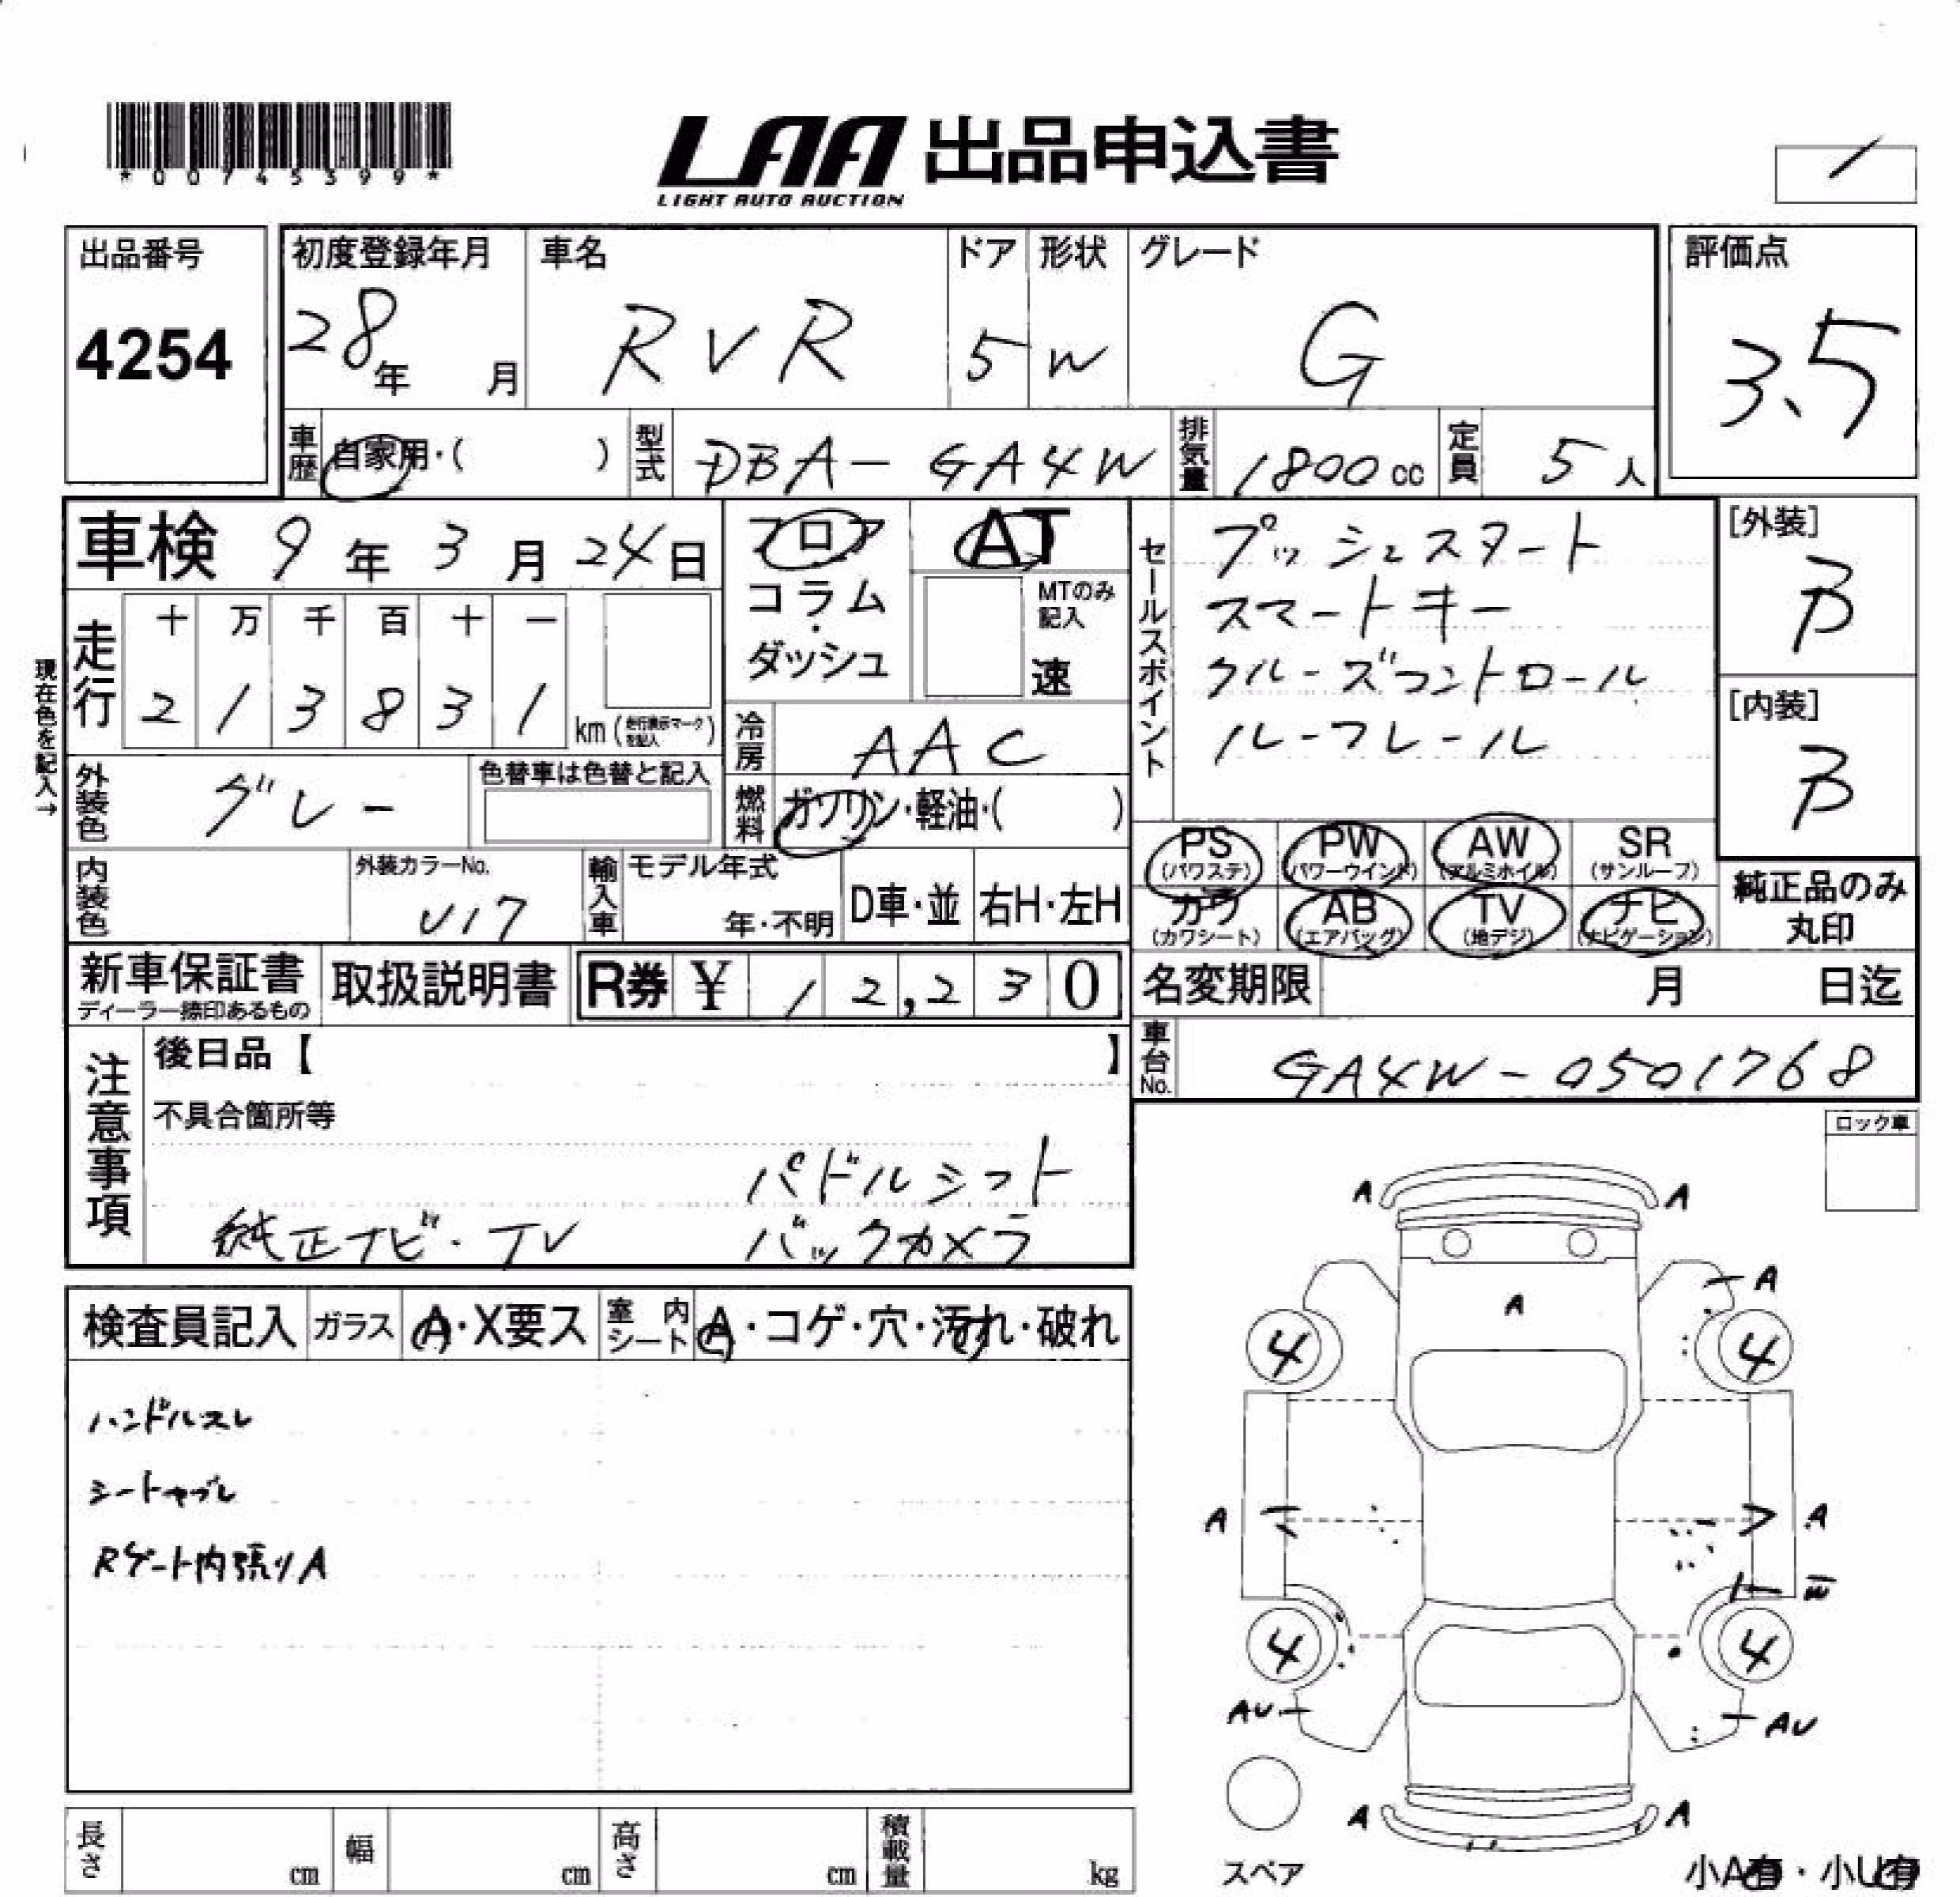 *00745399*
LAA 出品申込書
LIGHT AUTO AUCTION
出品番号
4254
初度登録年月
28年 月
車名
RVR
ドア
5
形状
W
グレード
G
評価点
3.5
車歴 自家用・( )
型式 DBA-GA4W
排気量 1800cc
定員 5人
車検 9年3月24日
フロア
コラム・
ダッシュ
AT
MTのみ記入
速
セールスポイント
プッシュスタート
スマートキー
クルーズコントロール
ルーフレール
[外装]
B
[内装]
B
現在色を記入→
走行 十 万 千 百 十 一
2 1 3 8 3 1 km (走行表示マークを記入)
冷房 AAC
外装色 グレー
色替車は色替と記入
燃料 ガソリン・軽油・( )
内装色
外装カラーNo.
U17
輸入車
モデル年式
年・不明
D車・並
右H・左H
PS (パワステ)
PW (パワーウインド)
AW (アルミホイル)
SR (サンルーフ)
カワ (カワシート)
AB (エアバッグ)
TV (地デジ)
ナビ (ナビゲーション)
純正品のみ
丸印
新車保証書
ディーラー捺印あるもの
取扱説明書
R券 ¥ 12,230
名変期限 月 日迄
車台No. GA4W-0501768
注意事項
後日品【 】
不具合箇所等
パドルシフト
純正ナビ・TV バックカメラ
ロック車
検査員記入
ガラス A・X要ス
室内シート A・コゲ・穴・汚れ・破れ
ハンドルスレ
シートヤブレ
Rゲート内張りA
A A
A
A
4 4
A A
W
4 4
AU AU
A A
スペア
小A有・小U有
長さ cm
幅 cm
高さ cm
積載量 kg